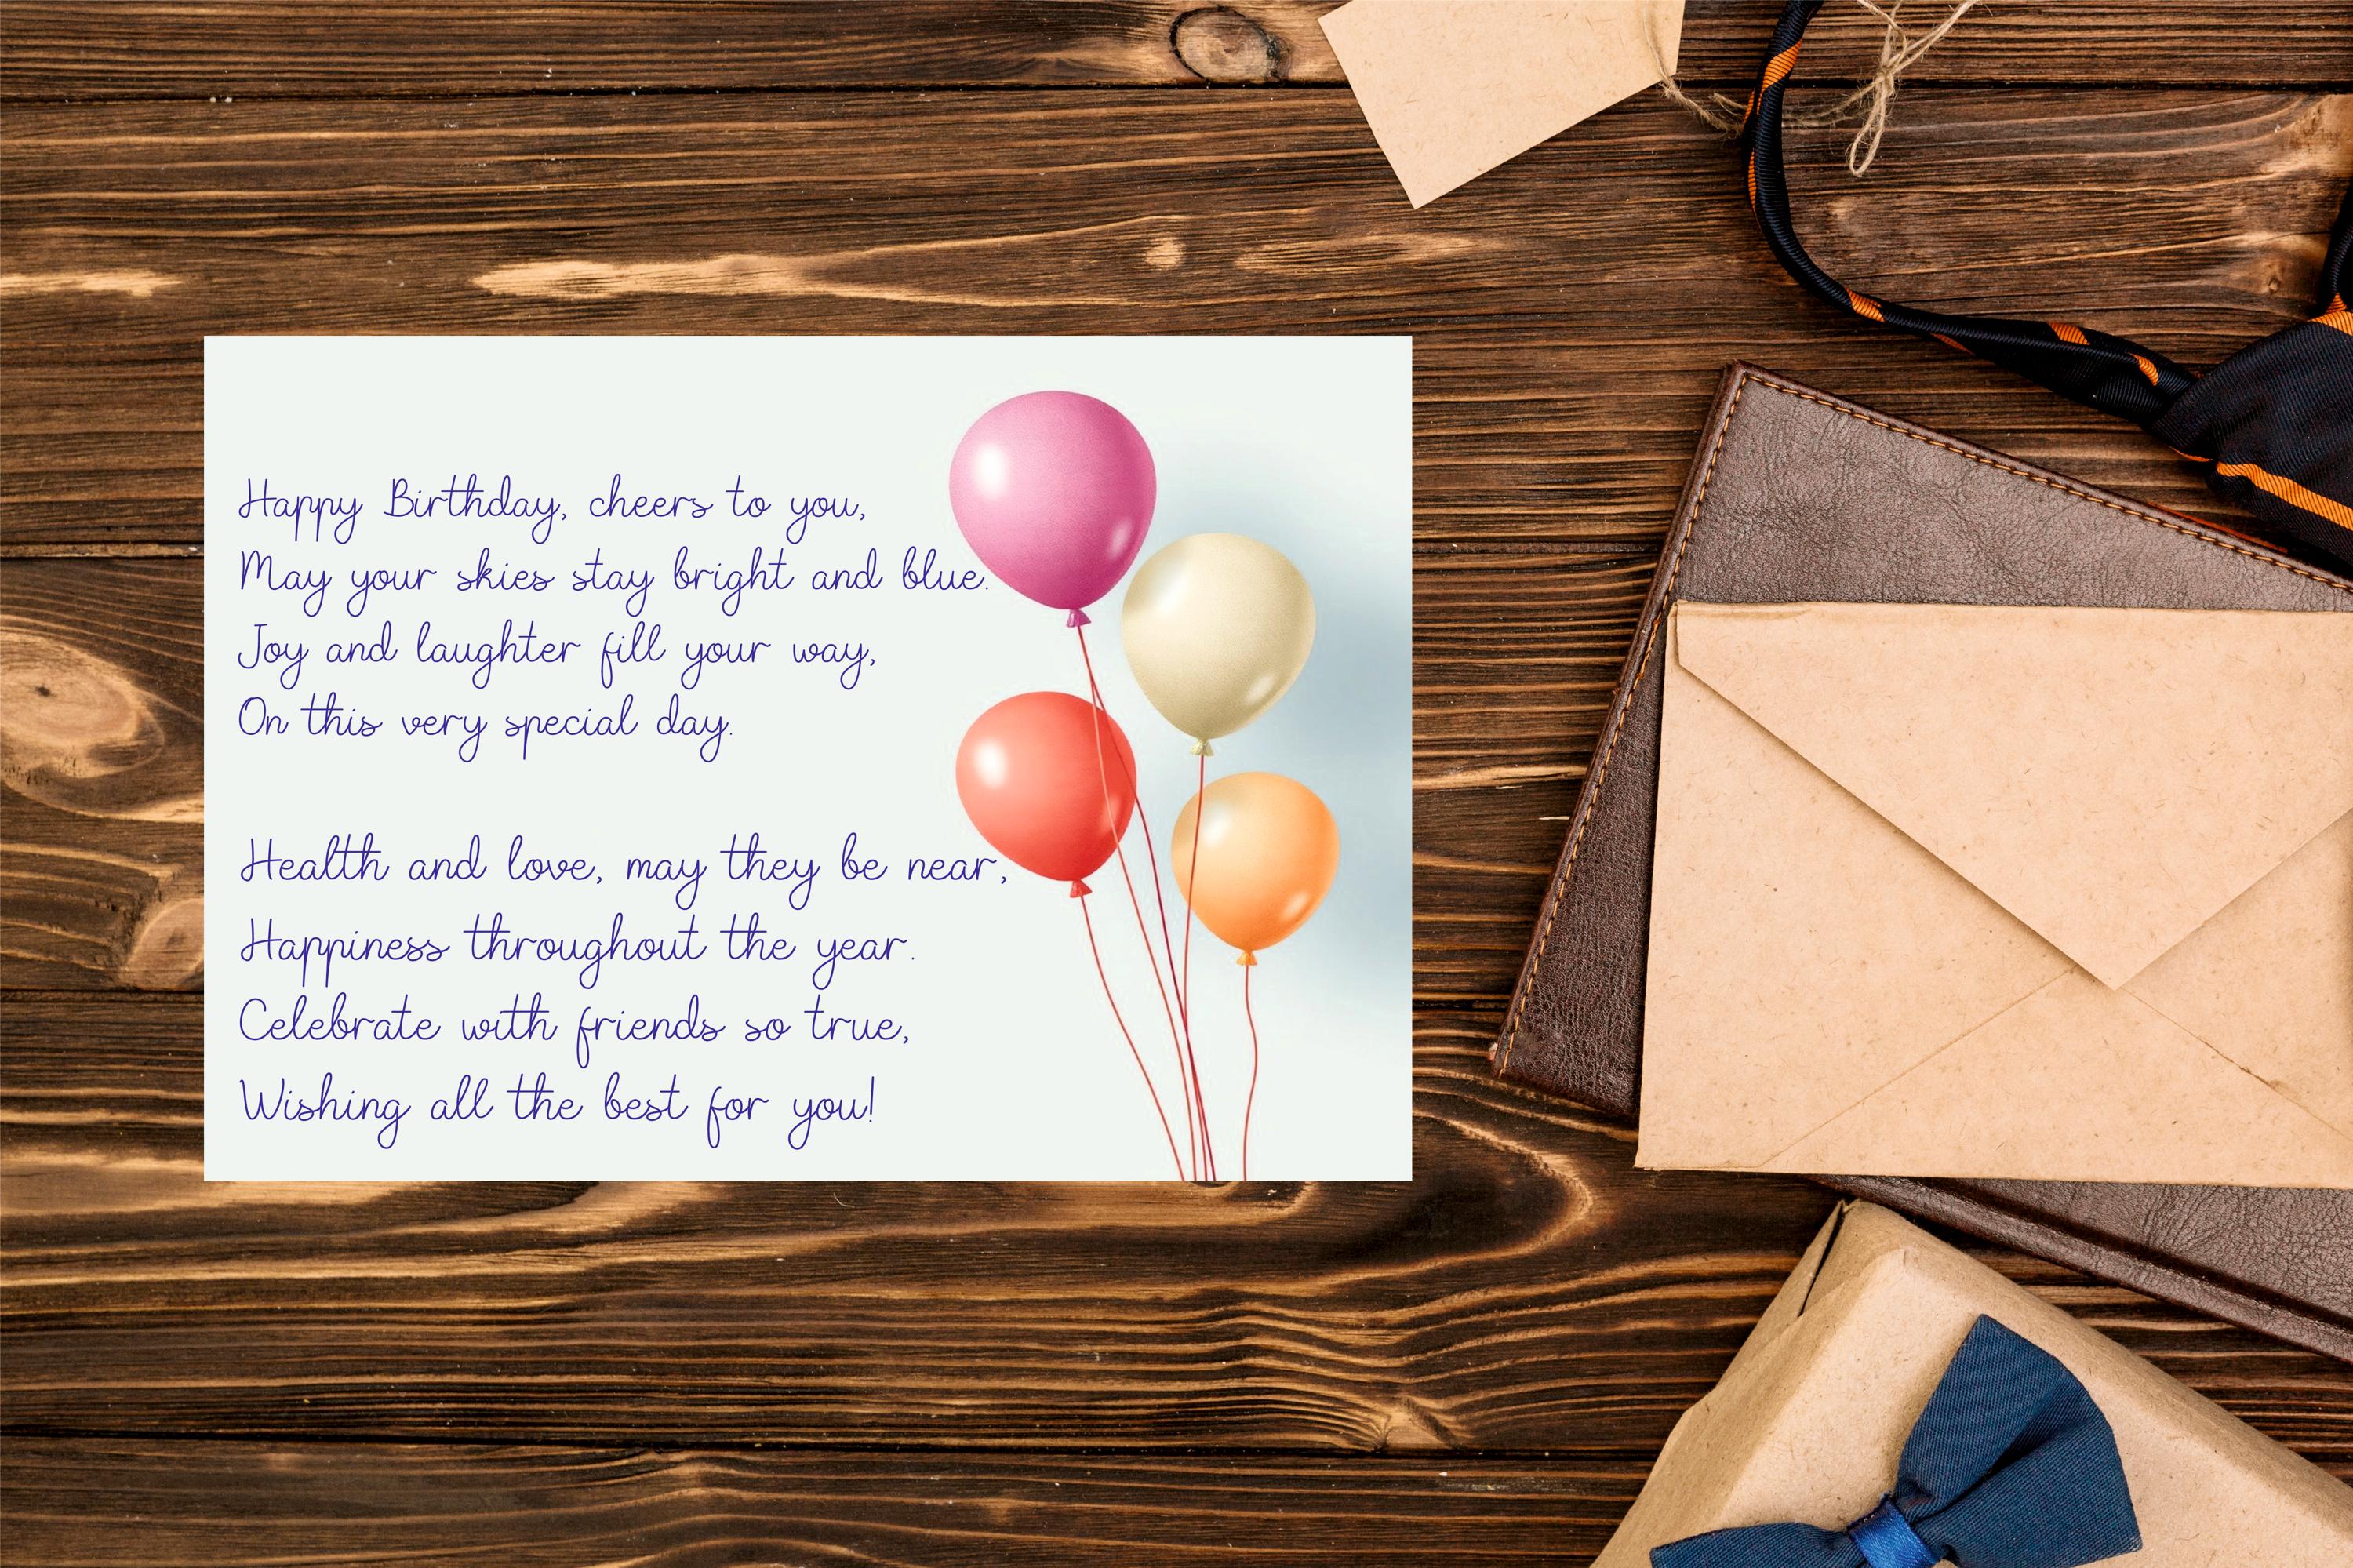 Happy Birthday, cheers to you,
May your skies stay bright and blue.
Joy and laughter fill your way,
On this very special day.
Health and love, may they be near,
Happiness throughout the year.
Celebrate with friends so true,
Wishing all the best for you!